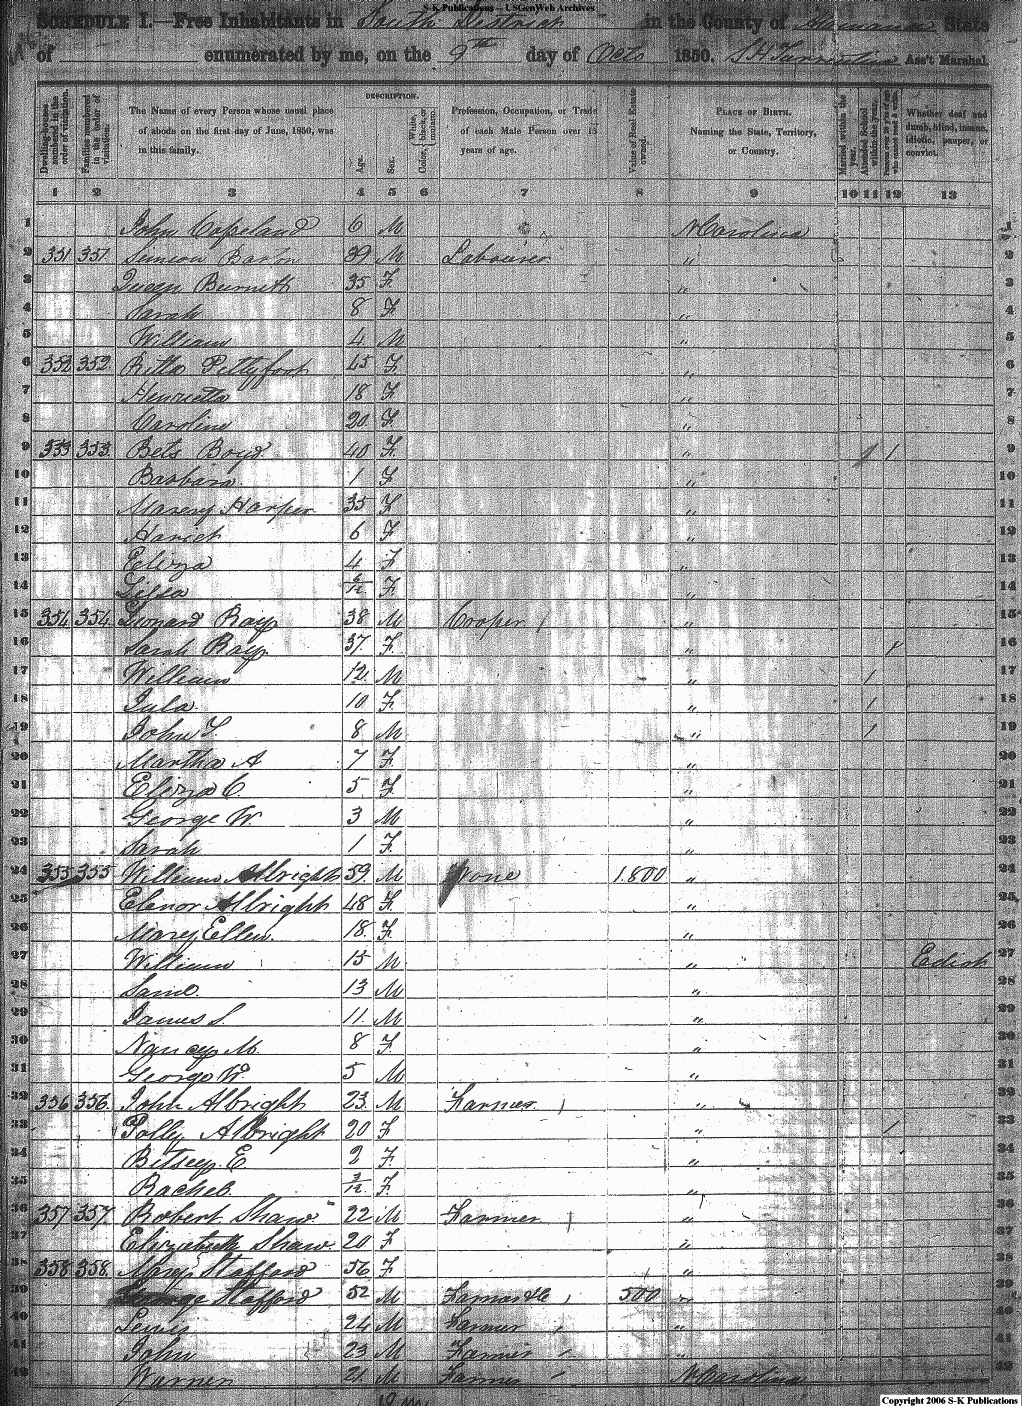 S-K Publications -- USGenWeb Archives
SCHEDULE I.—Free Inhabitants in South District in the County of Alamance State
of enumerated by me, on the 9th day of Octo 1850. Ass't Marshal.
DESCRIPTION.
Dwelling-houses numbered in the order of visitation.
Families numbered in the order of visitation.
The Name of every Person whose usual place of abode on the first day of June, 1850, was in this family.
Age.
Sex.
Color, White, black, or mulatto.
Profession, Occupation, or Trade of each Male Person over 15 years of age.
Value of Real Estate owned.
PLACE OF BIRTH. Naming the State, Territory, or Country.
Married within the year.
Attended School within the year.
Whether deaf and dumb, blind, insane, idiotic, pauper, or convict.
1 2 3 4 5 6 7 8 9 10 11 12 13
1 John Copeland 6 M N Carolina 1
2 351 351 Simeon 39 M Labourer " 2
3 Burnett 35 F " 3
4 Sarah 8 F " 4
5 William 4 M " 5
6 352 352 Pettyfoot 45 F " 6
7 Henrietta 18 F " 7
8 Caroline 20 F " 8
9 353 353 Bets Boyd 40 F " 1 1 9
10 Barbara 1 F " 10
11 Harper 35 F " 11
12 6 F " 12
13 Eliza 4 F " 13
14 F " 14
15 354 354 Leonard Ray 38 M Cooper / " 15
16 Sarah Ray 37 F " 16
17 William 12 M " 1 17
18 10 F " 1 18
19 8 M " 1 19
20 Martha A 7 F " 20
21 Eliza C. 5 F " 21
22 George W. 3 M " 22
23 Sarah 1 F " 23
24 355 355 William Albright 59 M None 1.800 " 24
25 Elenor Albright 48 F " 25
26 Mary Ellen 18 F " 26
27 William 15 M " 27
28 Saml. 13 M " 28
29 James S. 11 M " 29
30 Nancy M. 8 F " 30
31 George W. 5 M " 31
32 356 356 John Albright 23 M Farmer / " 32
33 Polly Albright 20 F " / 33
34 Betsey E 2 F " 34
35 Rachel 3/12 F " 35
36 357 357 Robert Shaw 22 M Farmer / " 36
37 Elizabeth Shaw 20 F " 37
38 358 358 Mary Stafford 56 F " 38
39 George Stafford 52 M 500 " 39
40 Lewis 24 M Farmer " 40
41 John 23 M Farmer " 41
42 Warner 21 M Farmer N Carolina 42
Copyright 2006 S-K Publications